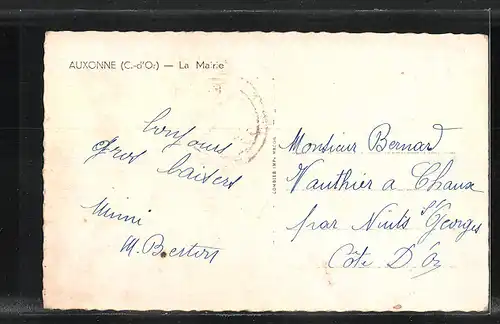 AUXONNE (C.-d'Or) — La Mairie
bonjours
gros baisers
Mimi
M. Bertin
COMBIER IMP. MACON
Monsieur Bernard
Vauthier a Chaux
par Nuits St Georges
Côte D'Or